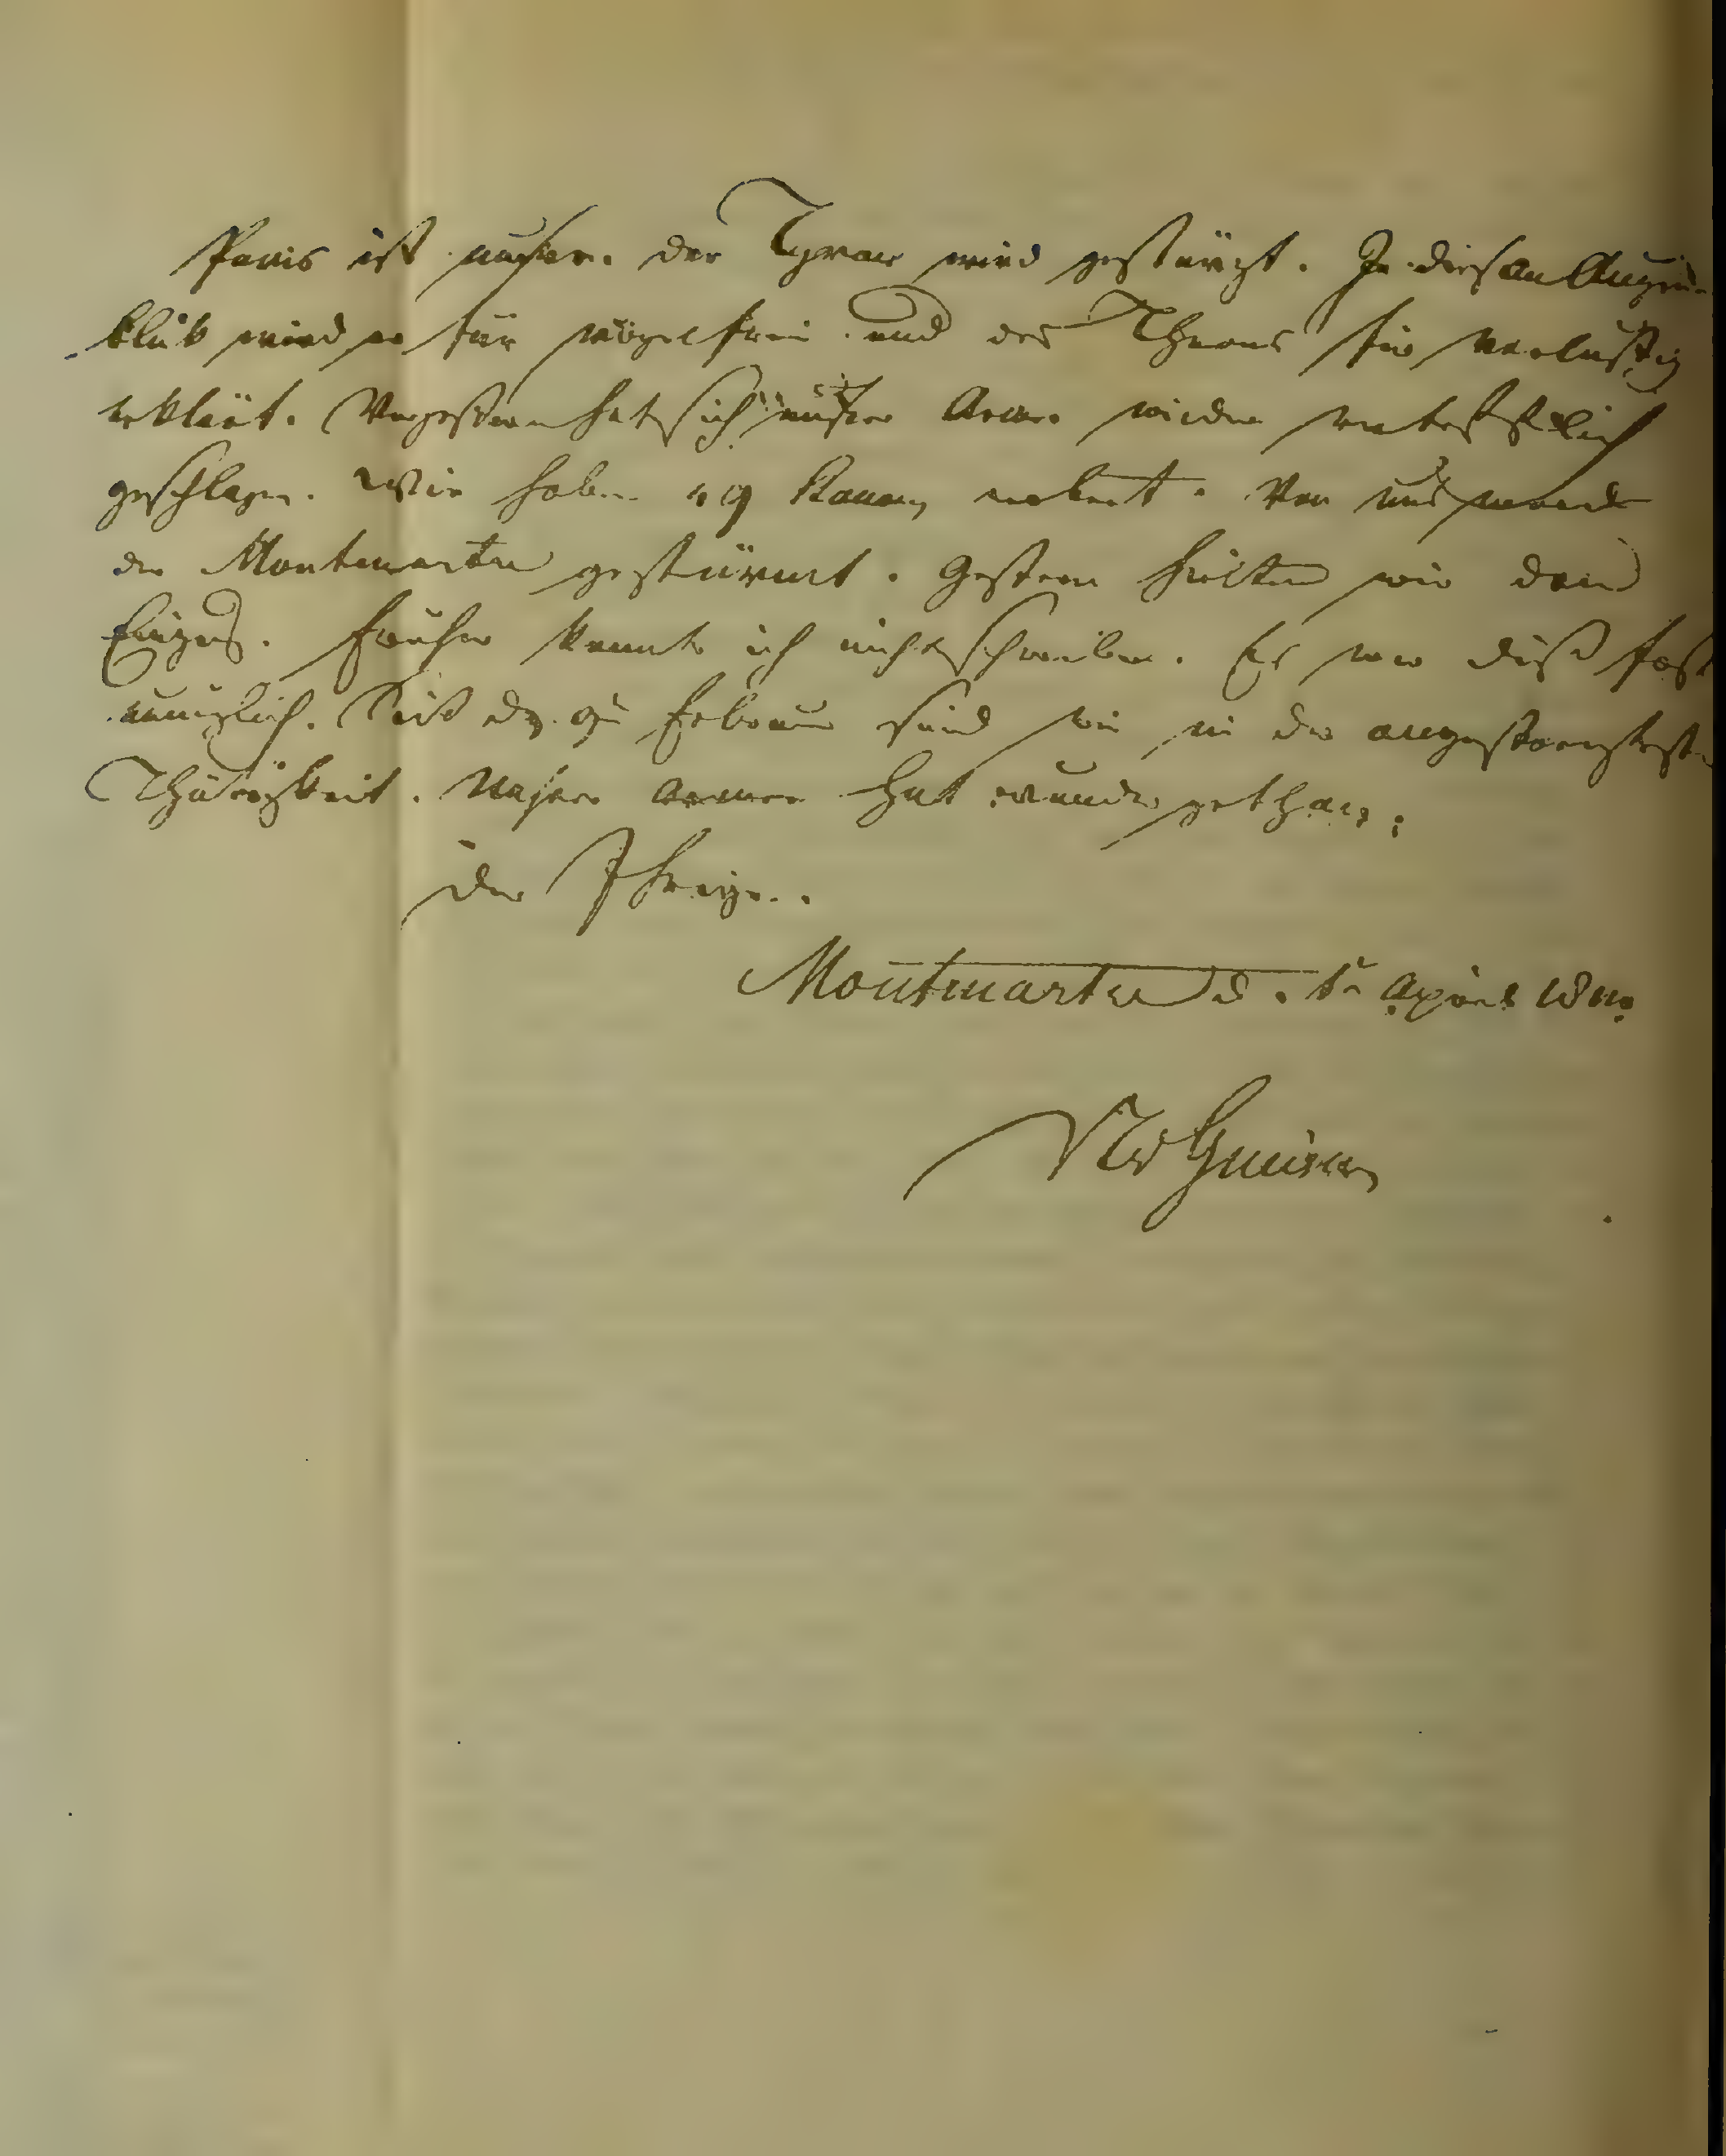 Paris ist unser. der Tyran wird gestürzt. In diesem Augen-
blik wird er für vogelfrei und des Throns für verlustig
erklärt. Vorgestern hat sich unsre Armee wieder vortrefflich
geschlagen. Wir haben 19 Kanonen erobert. Von uns wurde
der Montmartre gestürmt. Gestern hielten wir den
Einzug. Früher konnte ich nicht schreiben. Es war diß fast
unmöglich. Seit dem Februar sind wir in der angestrengtesten
Thätigkeit. Unsere Armee hat Wunder gethan.
der Ihrige.
Montmartre d. 1n April